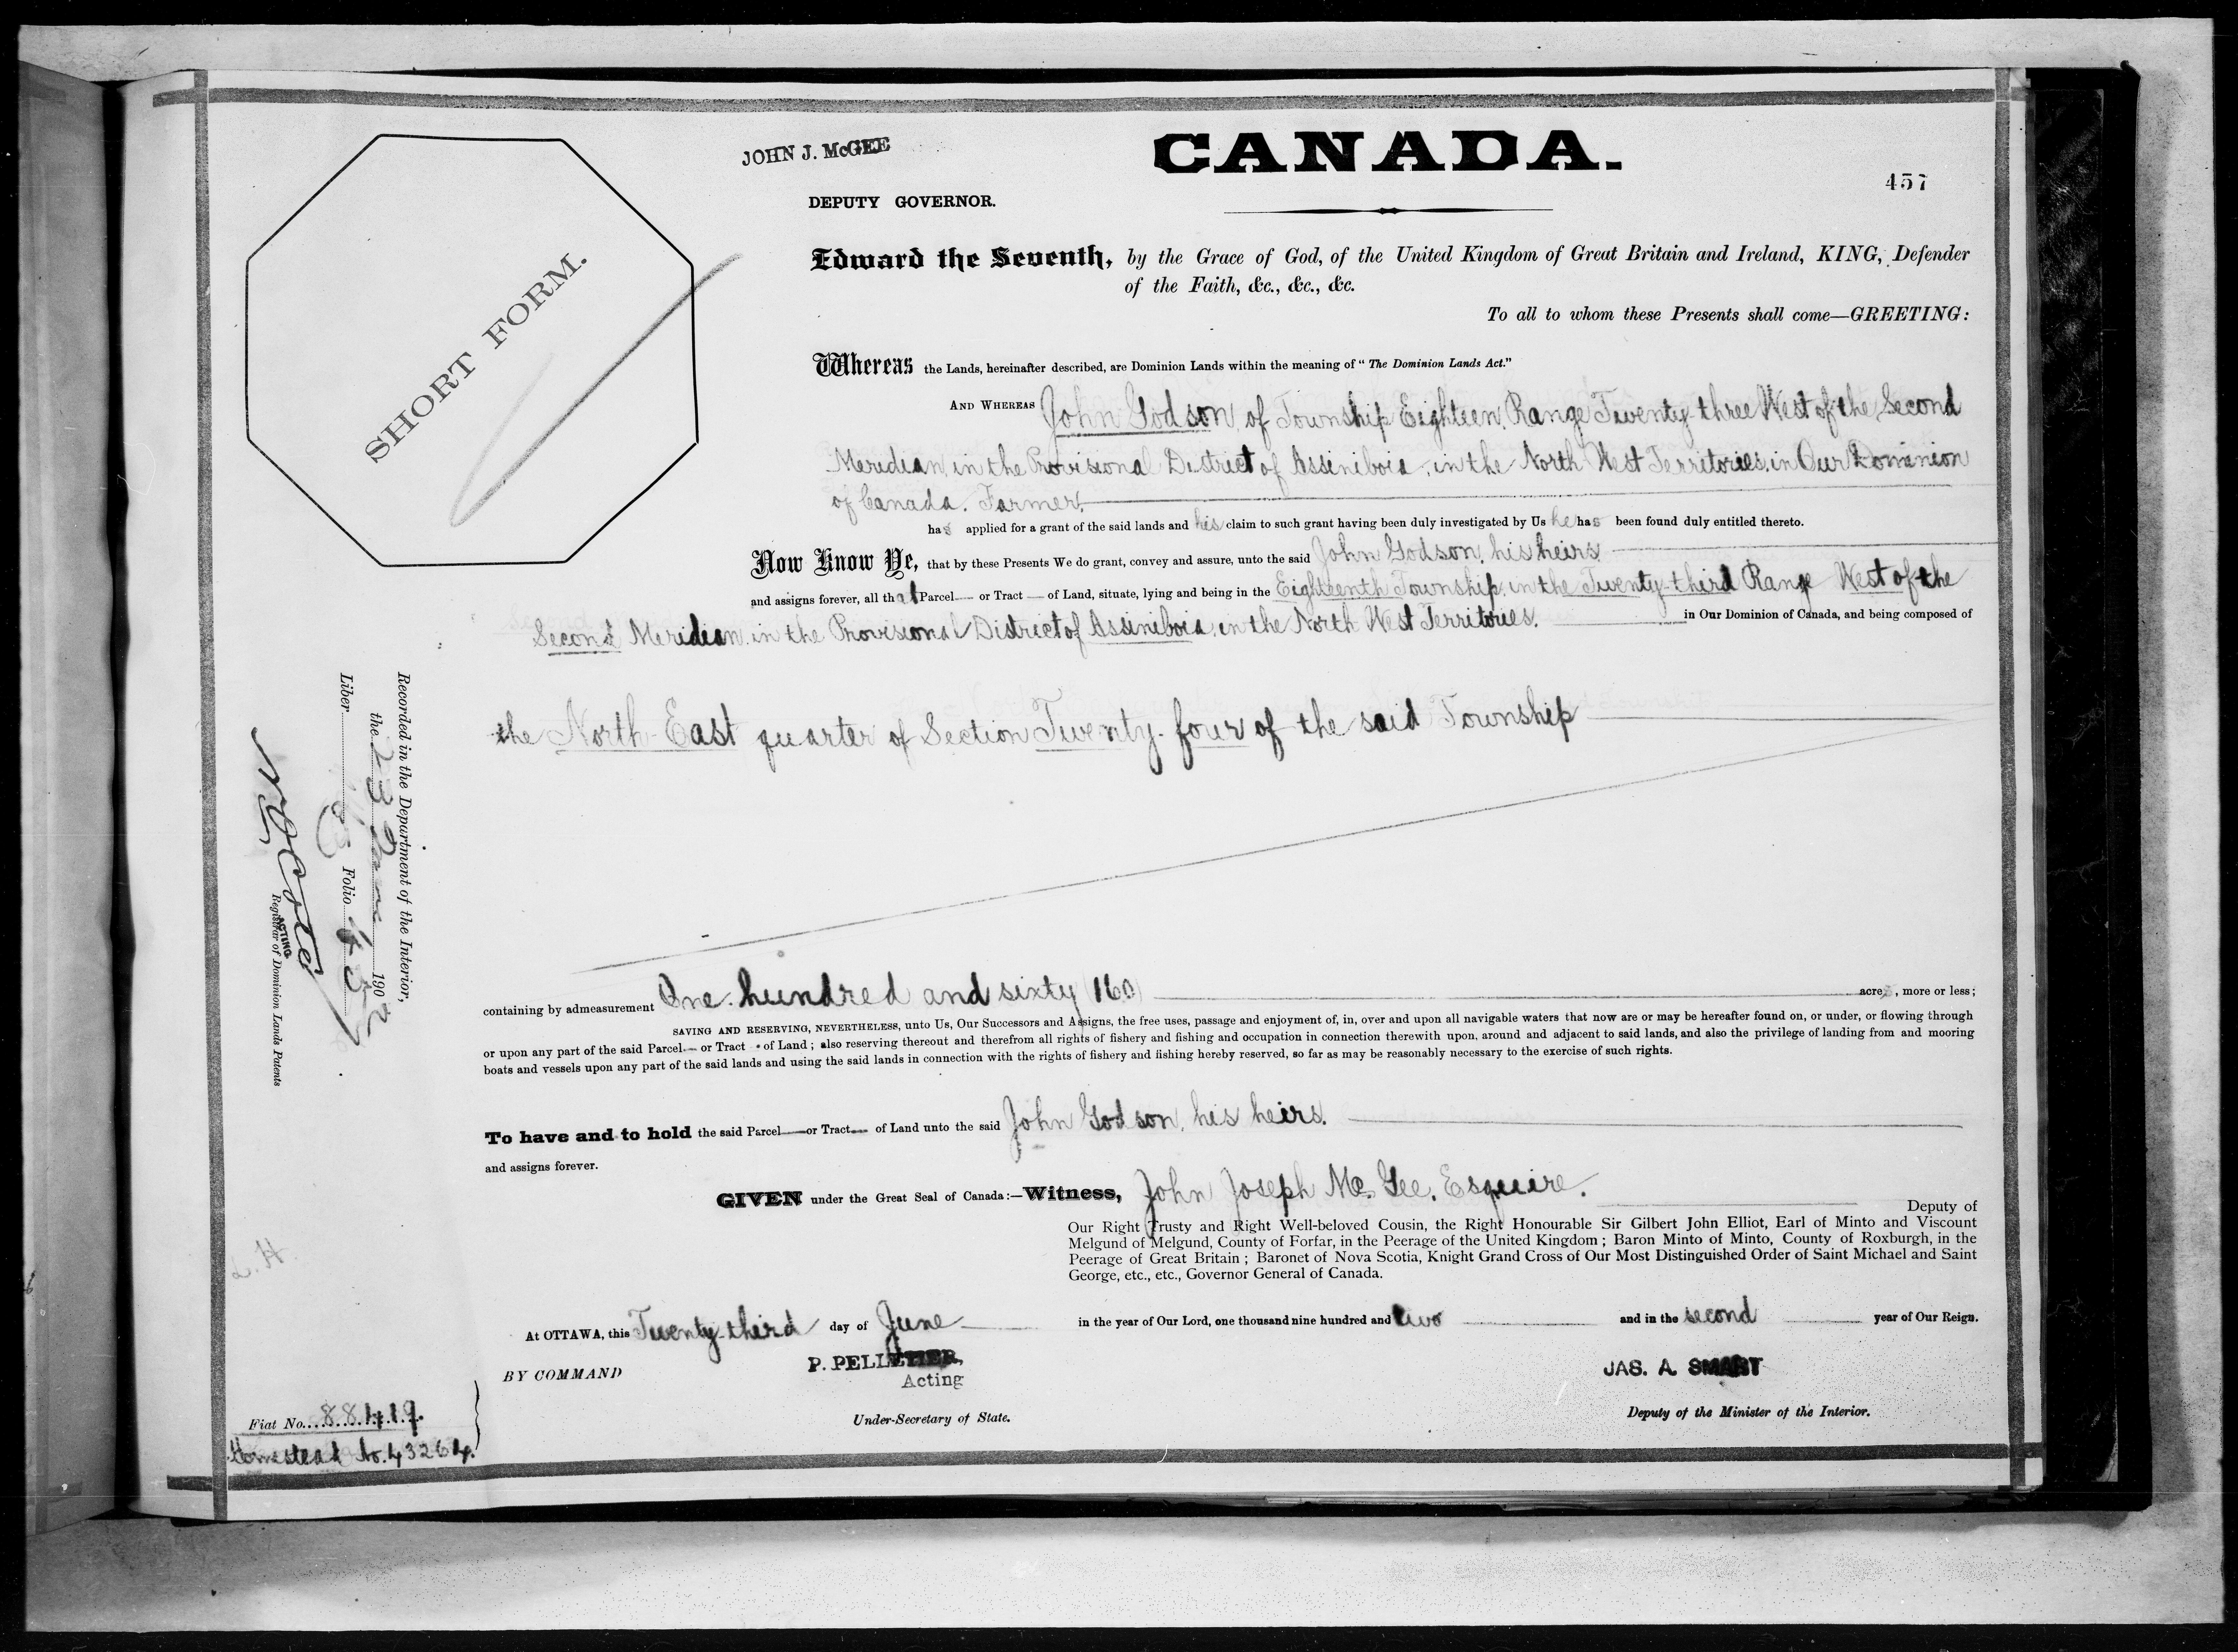 JOHN J. McGEE
CANADA.
457
DEPUTY GOVERNOR.
SHORT FORM.
Edward the Seventh, by the Grace of God, of the United Kingdom of Great Britain and Ireland, KING, Defender
of the Faith, &c., &c., &c.
To all to whom these Presents shall come—GREETING:
Whereas the Lands, hereinafter described, are Dominion Lands within the meaning of "The Dominion Lands Act."
AND WHEREAS John Godson, of Township Eighteen, Range Twenty-three West of the Second
Meridian, in the Provisional District of Assiniboia, in the North West Territories, in Our Dominion
of Canada. Farmer.
has applied for a grant of the said lands and his claim to such grant having been duly investigated by Us he has been found duly entitled thereto.
Now Know Ye, that by these Presents We do grant, convey and assure, unto the said John Godson, his heirs
and assigns forever, all that Parcel or Tract of Land, situate, lying and being in the Eighteenth Township, in the Twenty-third Range West of the
Second Meridian, in the Provisional District of Assiniboia, in the North West Territories. in Our Dominion of Canada, and being composed of
the North-East quarter of Section Twenty-four of the said Township
containing by admeasurement One hundred and sixty (160) acres, more or less;
SAVING AND RESERVING, NEVERTHELESS, unto Us, Our Successors and Assigns, the free uses, passage and enjoyment of, in, over and upon all navigable waters that now are or may be hereafter found on, or under, or flowing through
or upon any part of the said Parcel or Tract of Land; also reserving thereout and therefrom all rights of fishery and fishing and occupation in connection therewith upon, around and adjacent to said lands, and also the privilege of landing from and mooring
boats and vessels upon any part of the said lands and using the said lands in connection with the rights of fishery and fishing hereby reserved, so far as may be reasonably necessary to the exercise of such rights.
To have and to hold the said Parcel or Tract of Land unto the said John Godson, his heirs.
and assigns forever.
GIVEN under the Great Seal of Canada:—Witness, John Joseph McGee, Esquire. Deputy of
Our Right Trusty and Right Well-beloved Cousin, the Right Honourable Sir Gilbert John Elliot, Earl of Minto and Viscount
Melgund of Melgund, County of Forfar, in the Peerage of the United Kingdom; Baron Minto of Minto, County of Roxburgh, in the
Peerage of Great Britain; Baronet of Nova Scotia, Knight Grand Cross of Our Most Distinguished Order of Saint Michael and Saint
George, etc., etc., Governor General of Canada.
At OTTAWA, this Twenty-third day of June in the year of Our Lord, one thousand nine hundred and two and in the second year of Our Reign.
BY COMMAND
P. PELLETIER,
Acting
Under-Secretary of State.
JAS. A. SMART
Deputy of the Minister of the Interior.
Recorded in the Department of the Interior,
the 23 June 1902
Liber Folio
ACTING
Registrar of Dominion Lands Patents
L.H.
Fiat No. 88419.
Homestead No. 43264.